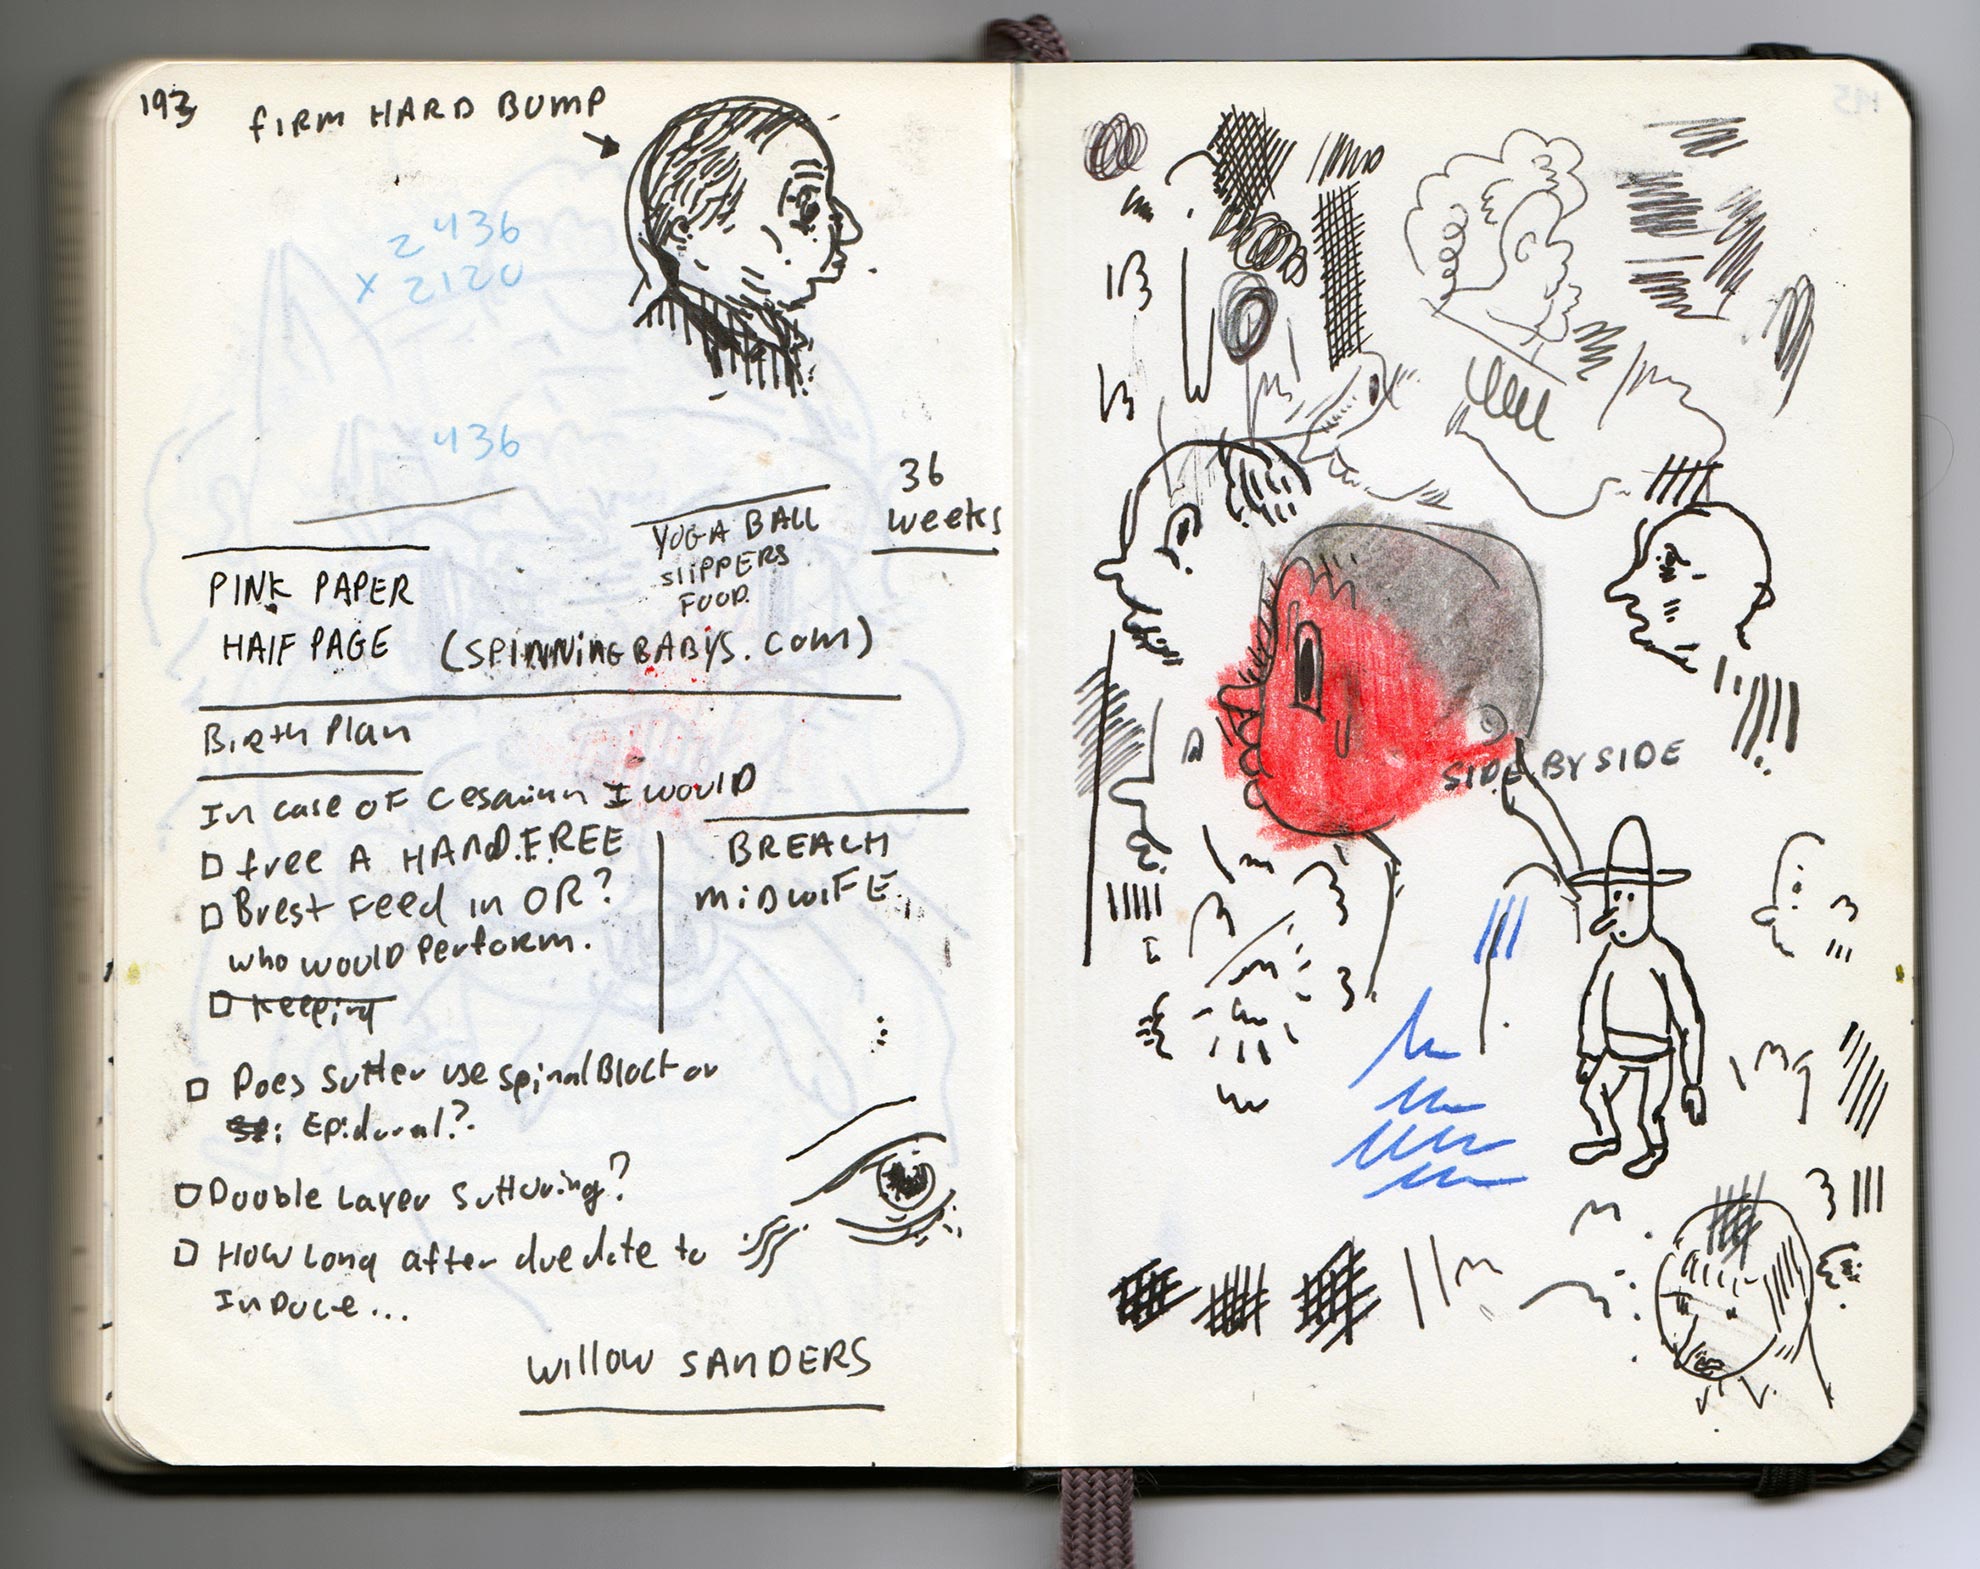 193
FIRM HARD BUMP
2436
x 2120
436
36
weeks
YOGA BALL
SLIPPERS
FOOD.
PINK PAPER
HALF PAGE (SPINNINGBABYS.COM)
Birth Plan
In case of Cesarian I WOULD
free A HAND.FREE
Brest Feed in OR?
who would Perform.
Keeping
BREACH
MIDWIFE
Does Sutter use Spinal Block or
Epidural?
Double Layer Suturing?
How Long after due date to
InDuce...
WILLOW SANDERS
SIDE BY SIDE